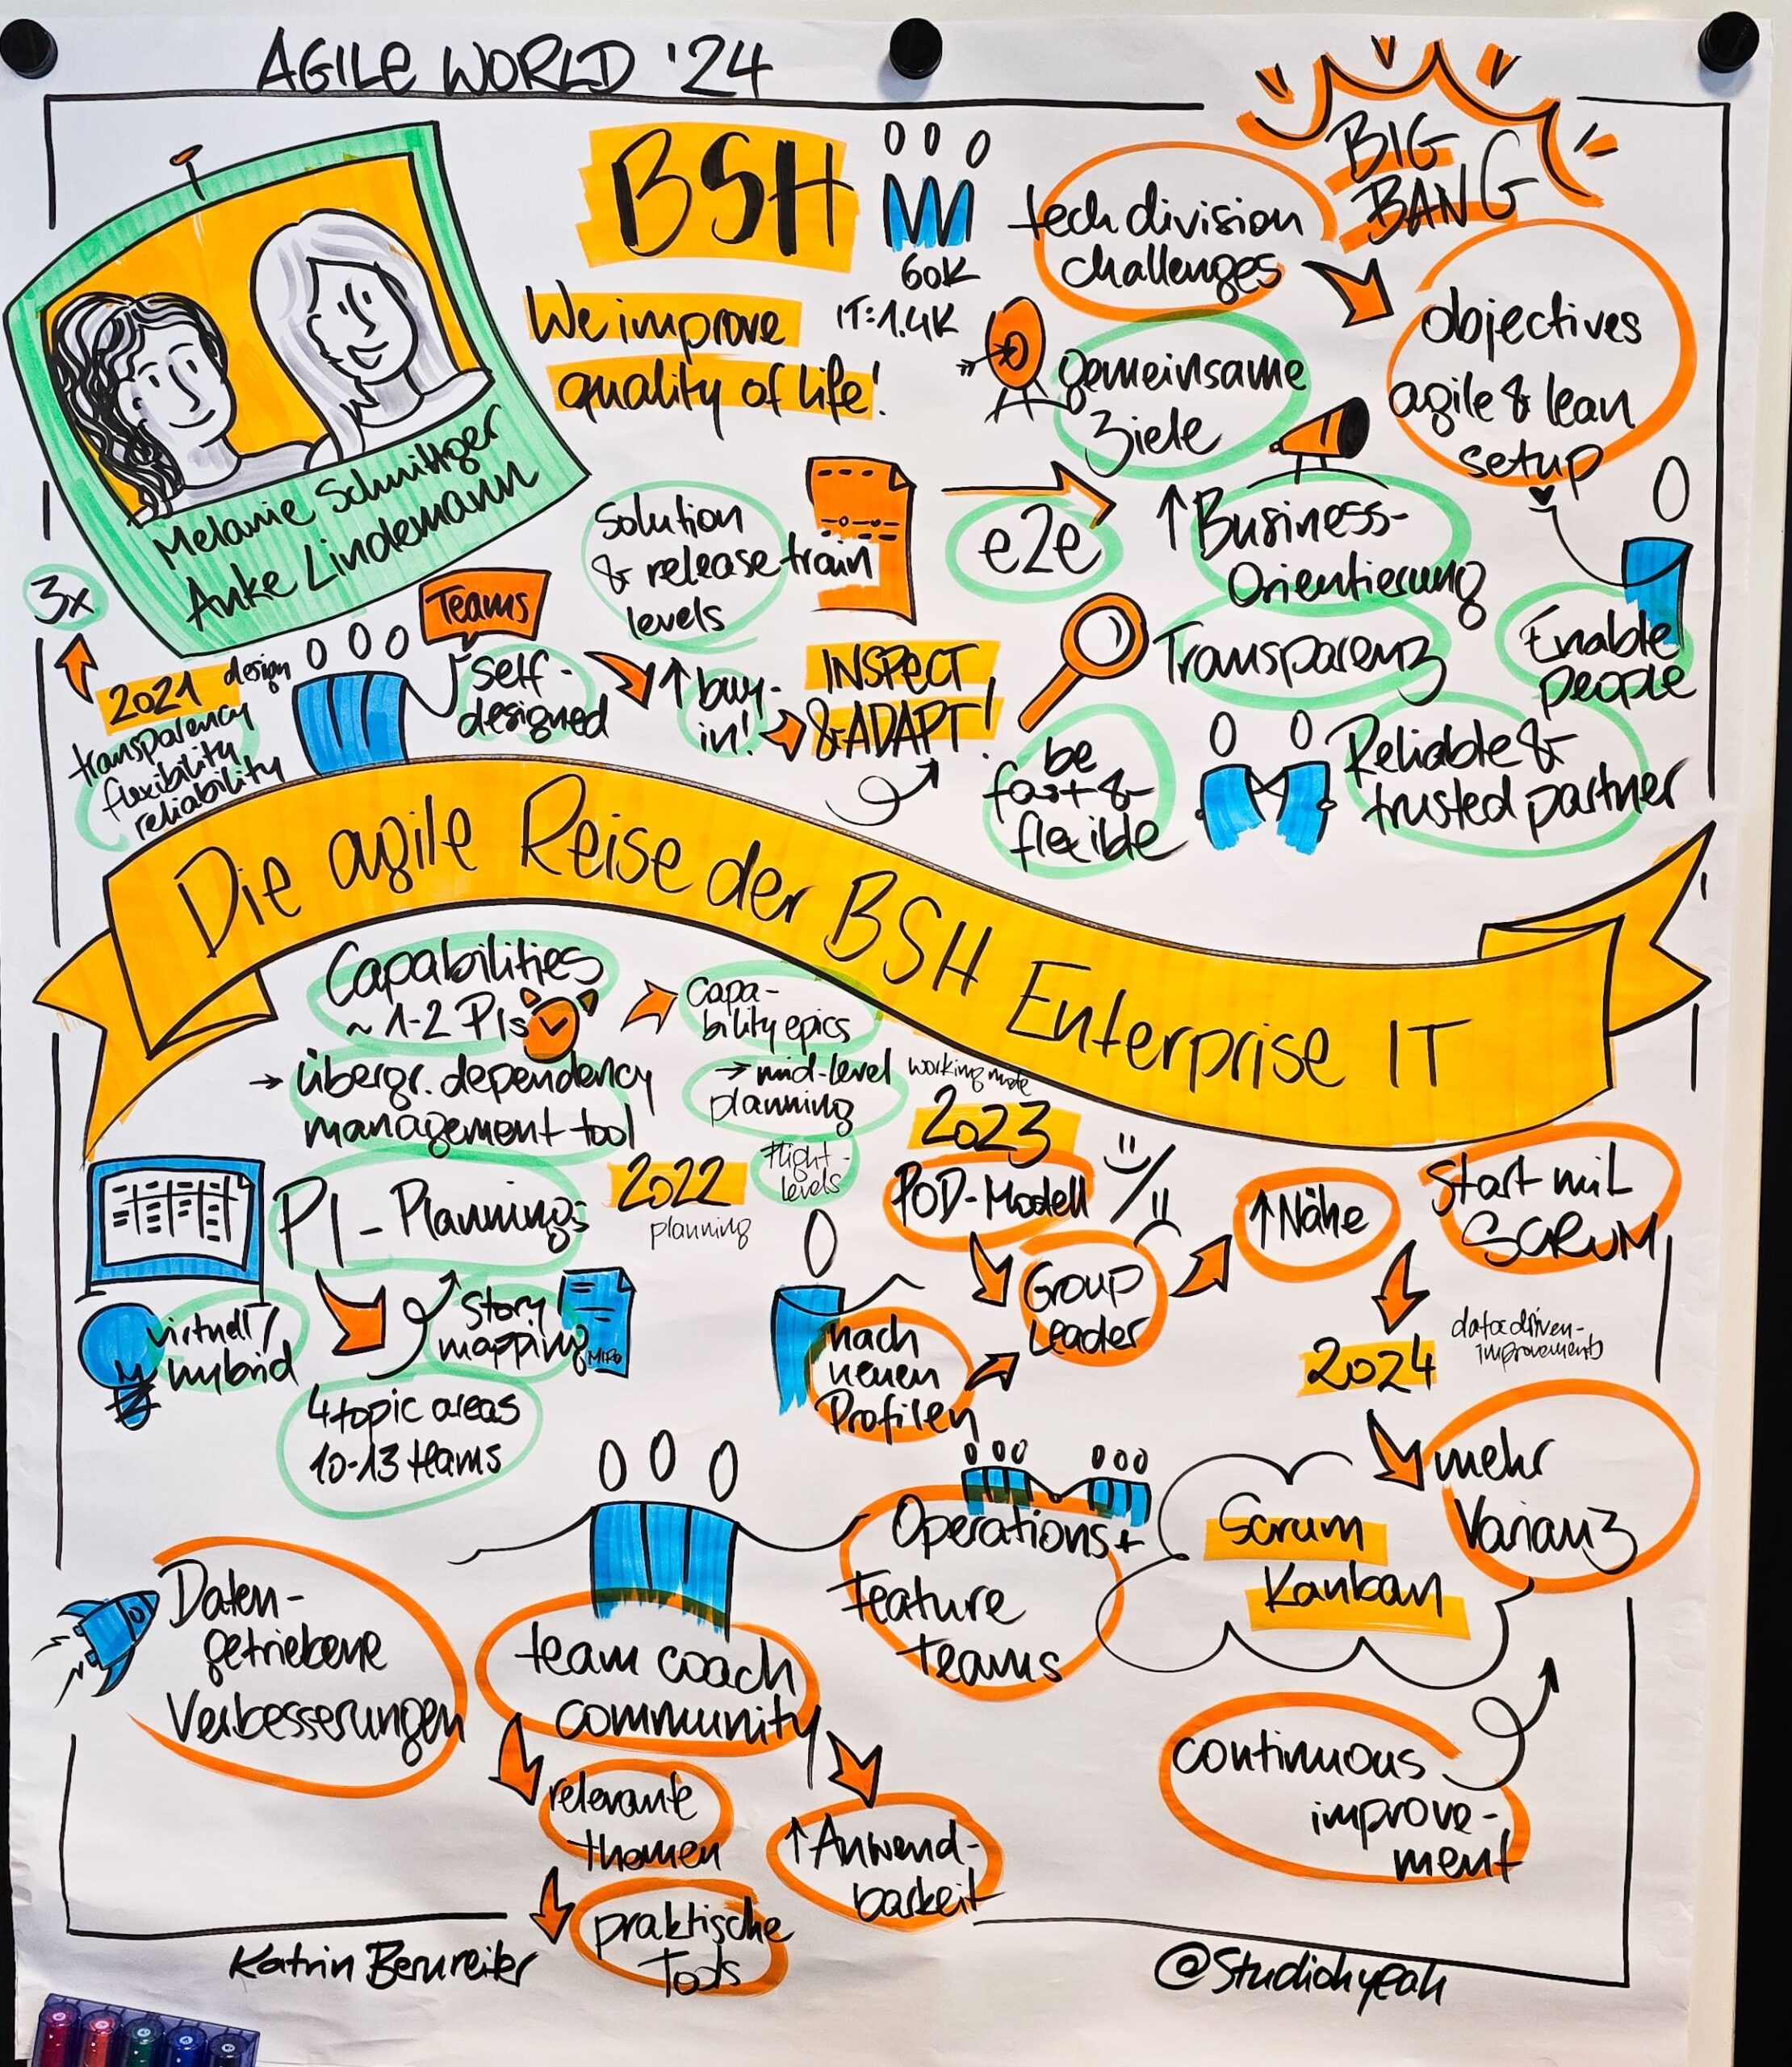 AGILE WORLD '24
BIG
BANG
BSH
60K
IT: 1.4K
We improve
quality of life!
Melanie Schnittger
Anke Lindemann
tech division
challenges
objectives
agile & lean
setup
gemeinsame
Ziele
Solution
& release train
levels
e2e
↑ Business-
Orientierung
Transparenz
Enable
people
be
fast &
flexible
Reliable &
trusted partner
3x
2021
design
transparency
flexibility
reliability
Teams
self-
designed
↑ buy-
in!
INSPECT
& ADAPT!
Die agile Reise der BSH Enterprise IT
Capabilities
~ 1-2 PIs
→ übergr. dependency
management tool
Capa-
bility epics
→ mid-level
planning
Flight-
levels
2022
planning
PI-Plannings
virtuell /
hybrid
story
mapping
MIRO
4 topic areas
10-13 teams
working mode
2023
POD-Modell
Group
Leader
nach
neuen
Profilen
↑ Nähe
Start mit
SCRUM
2024
data driven-
improvements
mehr
Varianz
Scrum
Kanban
Operations +
Feature
Teams
continuous
improve-
ment
Daten-
getriebene
Verbesserungen
team coach
community
relevante
themen
praktische
Tools
↑ Anwend-
barkeit
Katrin Bernreiter
@Studiohyeah